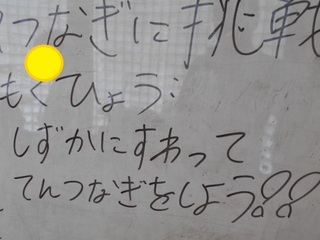 つなぎに挑戦
もくひょう:
しずかにすわって
てんつなぎをしよう!!